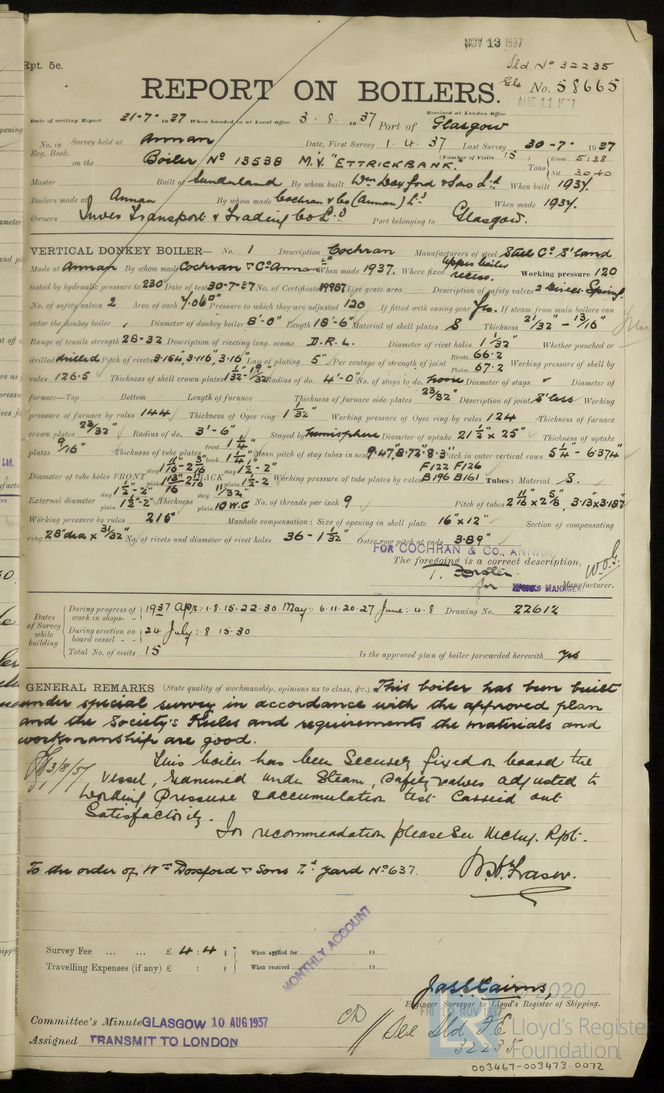 NOV 13 1937
Rpt. 5e.
Sld. No 32235
REPORT ON BOILERS.
Gls No. 58665
AUG 11 1937
Date of writing Report 21-7-1937 When handed in at Local Office 3.8.1937 Port of Glasgow
Received at London Office
No. in Survey held at Annan Date, First Survey 1.4.37 Last Survey 30-7-1937
Reg. Book. (Number of Visits 15) Gross 5138
on the Boiler No 13538 M.V. "ETTRICKBANK." Tons Net 3040
Master Built at Sunderland By whom built Wm Doxford & Sons Ld When built 1937.
Boilers made at Annan By whom made Cochran & Co (Annan) Ld When made 1937.
Owners Inver Transport & Trading Co Ld Port belonging to Glasgow.
VERTICAL DONKEY BOILER— No. 1 Description Cochran Manufacturers of steel Steel Co S'land
Made at Annan By whom made Cochran & Co Annan Ld When made 1937. Where fixed Upper boiler recess. Working pressure 120
tested by hydraulic pressure to 230 Date of test 30-7-37 No. of Certificate 19987 Fire grate area Description of safety valves 2 Direct Spring
No. of safety valves 2 Area of each 7.06" Pressure to which they are adjusted 120 If fitted with easing gear Yes. If steam from main boilers can
enter the donkey boiler Diameter of donkey boiler 8'-0" Length 18'-6" Material of shell plates S Thickness 21/32" - 13/16"
Range of tensile strength 28-32 Description of riveting long. seams D.R.L. Diameter of rivet holes 1 1/32" Whether punched or
drilled drilled Pitch of rivets 3.154, 3.116", 3.16" Lap of plating 5" Per centage of strength of joint Rivets 66.2 Plates 67.2 Working pressure of shell by
rules 126.5 Thickness of shell crown plates Radius of do. 4'-0" No. of stays to do. none Diameter of stays Diameter of
furnace—Top Bottom Length of furnace Thickness of furnace side plates 23/32" Description of joint S'less Working
pressure of furnace by rules 144 Thickness of Ogee ring 1 1/32" Working Pressure of Ogee ring by rules 124 Thickness of furnace
crown plates 23/32" Radius of do. 3'-6" Stayed by hemisphere Diameter of uptake 21 1/2" x 25" Thickness of uptake
plates 9/16" Thickness of tube plates front back 1 1/4" Mean pitch of stay tubes in nests 9.47, 8.72, 8.3" Pitch in outer vertical rows 5 1/4" - 6.374"
Diameter of tube holes FRONT stay plain BACK stay plain Working pressure of tube plates by rules F122 F126 B196 B161 Tubes: Material S.
External diameter stay plain Thickness stay 11/32" plain 10 W.G. No. of threads per inch 9 Pitch of tubes 2 11/16" x 2 5/8", 3.13 x 3.187
Working pressure by rules 216 Manhole compensation: Size of opening in shell plate 16" x 12" Section of compensating
ring 28" dia x 31/32" No. of rivets and diameter of rivet holes 36 - 1 1/32" Outer row pitch at ends 3.89"
FOR COCHRAN & CO., ANNAN,
The foregoing is a correct description,
for WORKS MANAGER Manufacturer.
Dates of Survey while building
During progress of work in shops - - 1937 Apr: 1.8.15.22.30 May: 6.11.20.27 June: 4.8 Drawing No. 22612
During erection on board vessel - - 24 July: 8 15.30
Total No. of visits 15 Is the approved plan of boiler forwarded herewith Yes
GENERAL REMARKS (State quality of workmanship, opinions as to class, &c.) This boiler has been built
under special survey in accordance with the approved plan
and the Society's Rules and requirements the materials and
workmanship are good.
This boiler has been securely fixed on board the
vessel, examined under steam, safety valves adjusted to
working pressure & accumulation test carried out
satisfactorily.
3/8/37
For recommendation please see Mchy. Rpt.
To the order of Wm Doxford & Sons Ld Yard No 637.
Survey Fee ... ... £ 4:4: When applied for 19
Travelling Expenses (if any) £ : : When received 19
MONTHLY ACCOUNT
Jas S Cairns,
Engineer Surveyor to Lloyd's Register of Shipping.
2020
FRI 19 NOV 1937
Committee's Minute GLASGOW 10 AUG 1937
Assigned TRANSMIT TO LONDON
See Sld. F.E.
32235
Lloyd's Register
Foundation
003467-003473-0072